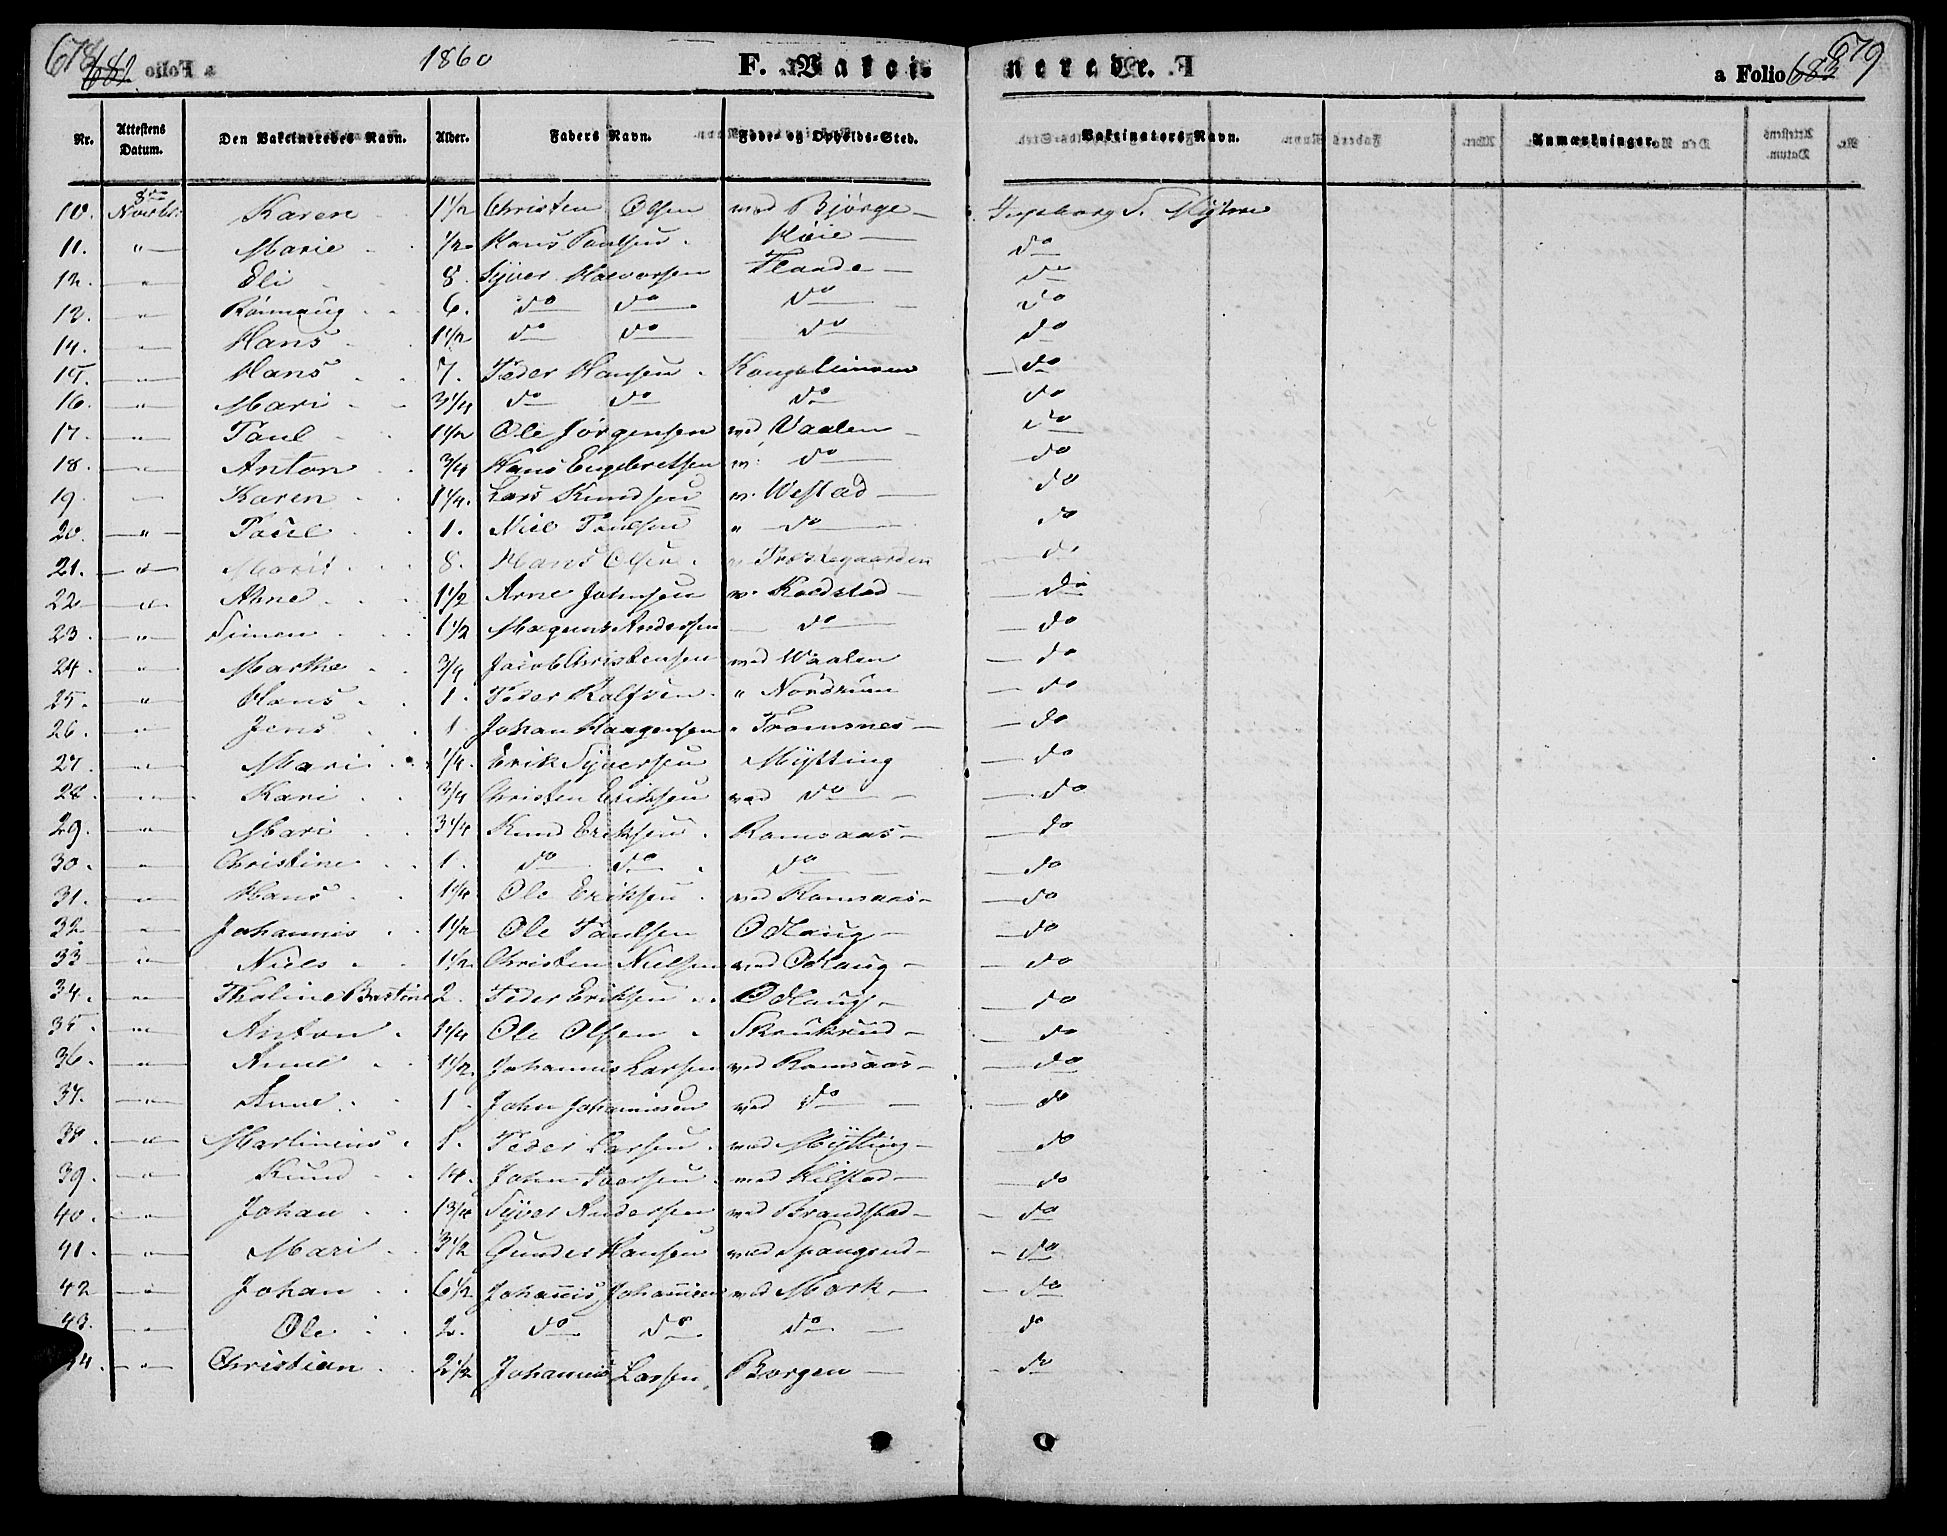 678 682 a Folio 1860 F. Vakci- nerede. F a Folio 683 679
Nr. Attestens Datum. Den Vakcineredes Navn. Alder. Faders Navn. Føde- og Opholds-Sted. Vakcinators Navn. Anmærkninger.
10. 8de Novbr. Karen 1 1/2 Christen Olsen ved Bjørge Ingeborg S.
11. " Marie 1/2 Hans Paulsen do
12. " Eli 8. Syver Halvorsen Flaade do
13. " Rønnaug 6. do do do do
14. " Hans 1 1/2 do do do do
15. " Hans 7. Peder Hansen do
16. " Mari 3 1/4 do do do do
17. " Paul 1 1/2 Ole Jørgensen ved Vaalen do
18. " Anton 3/4 Hans Engebretsen v. do do
19. Karen 1 1/4. Lars Knudsen v. Westad do
20. " Paul 1. Niel Paulsen " do do
21. " Marit 8. Hans Olsen v. Præstegaarden do
22 " Anne 1 1/2 Arne Johnsen v. Koldstad do
23. " Simen 1 1/2 Magnus Andersen do do
24. " Marthe 3/4 Jacob Christensen ved Waalen do
25. " Hans 1. Peder Rolfsen " Nordrum do
26. " Jens 1 Johan Haagensen " Tromsnes do
27. " Mari 1/4. Erik Syversen Mytting do
28. " Kari 3/4 Christen Eriksen ved do do
29. " Mari 3 1/4 Knud Eriksen Ramsaas do
30. " Christine 1. do do do do
31. " Hans 1 1/4. Ole Eriksen ved Ramsaas do
32 " Johannes 1 1/2 Ole Paulsen Odlaug do
33 " Niels 1 1/2. Christen Nielsen ved Odlaug do
34. " Tholine Bastine 2. Peder Eriksen Odlaug do
35. " Anton 1 1/4 Ole Olsen Skrukrud do
36. " Anne 1 1/2. Johannes Larsen ved Ramsaas do
37. " Anne 1. John Johannesen ved do do
38. " Martinius 1. Peder Larsen ved Mytting do
39. " Knud 14. John Iversen ved Kilstad do
40. " Johan 1 3/4 Syver Andersen ved Brandstad do
41. " Mari 3 1/2 Gunder Hansen ved Spangrud do
42 " Johan 6 1/2 Johannis Johannesen ved Mork do
43. " Ole 2. do do do do
44. " Christian 2 1/2 Johannes Larsen Borgen do